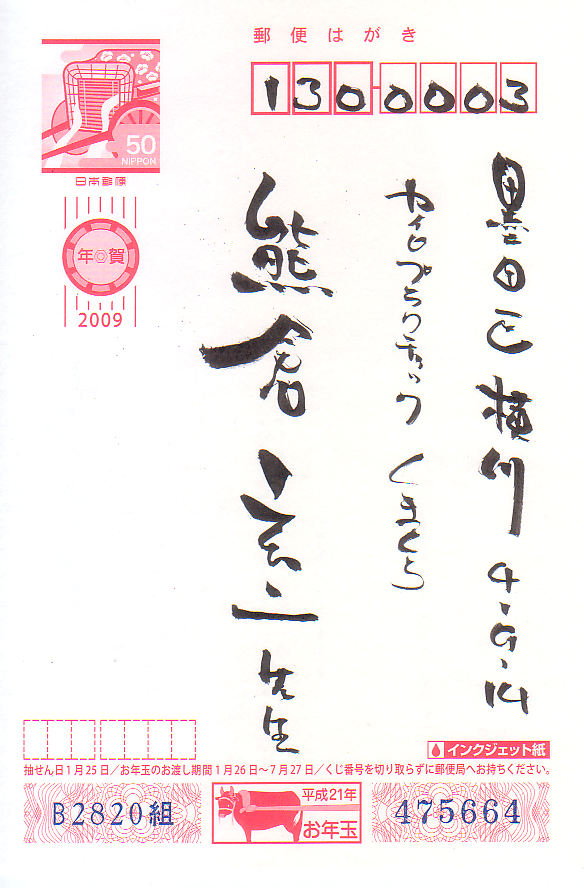 郵便はがき
130-0003
50
NIPPON
日本郵便
年賀
2009
墨田区横川4-9-14
カイロプラクチック くまくら
熊倉 先生
インクジェット紙
抽せん日1月25日／お年玉のお渡し期間1月26日～7月27日／くじ番号を切り取らずに郵便局へお持ちください。
B2820組
平成21年
お年玉
475664